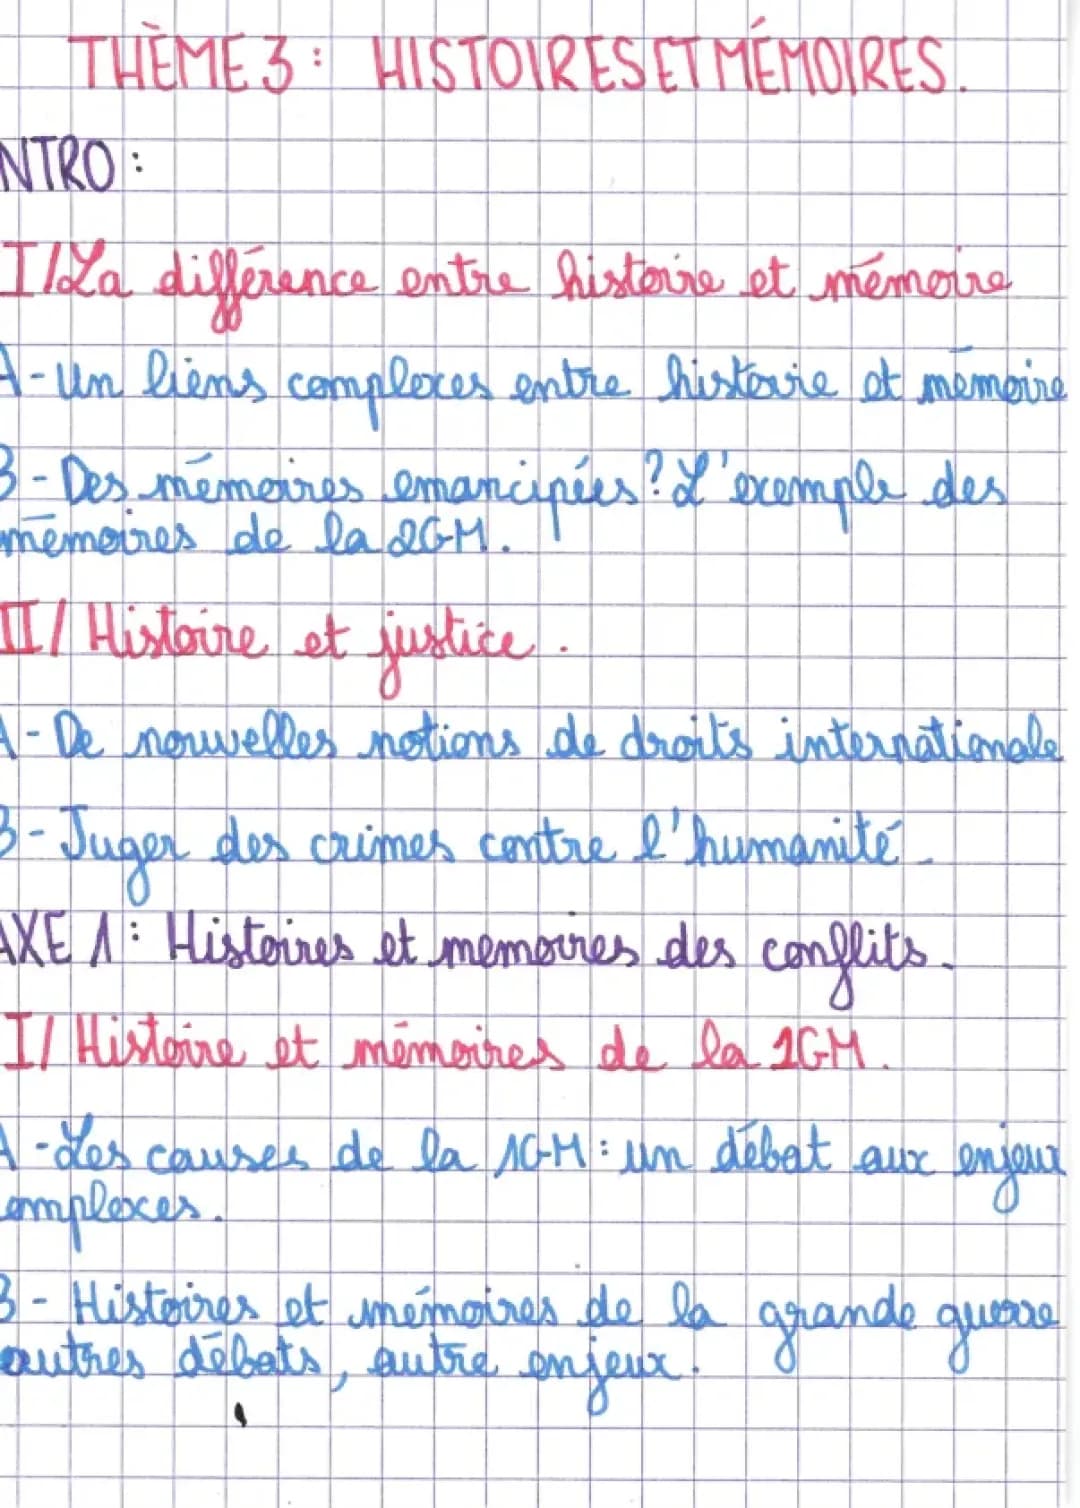 THÈME 3 : HISTOIRES ET MÉMOIRES.
NTRO :
I/La différence entre histoire et mémoire
A-Un liens complexes entre histoire et mémoire
B-Des mémoires emancipées? L'exemple des
mémoires de la 2GM.
II/ Histoire et justice.
A-De nouvelles notions de droits internationale
B-Juger des crimes contre l'humanité.
AXE 1 : Histoires et memoires des conflits.
I/ Histoire et mémoires de la 1GM.
A-Les causes de la 1GM : un débat aux enjeux
complexes.
B-Histoires et mémoires de la grande guerre
autres débats, autre enjeux.